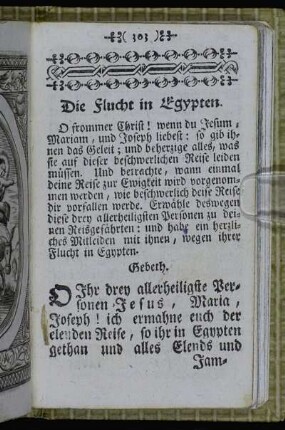 ( 303 )
Die Flucht in Egypten.
O frommer Christ! wenn du Jesum,
Mariam, und Joseph liebest: so gib ih-
nen das Geleit; und beherzige alles, was
sie auf dieser beschwerlichen Reise leiden
müssen. Und betrachte, wann einmal
deine Reise zur Ewigkeit wird vorgenom-
men werden, wie beschwerlich diese Reise
dir vorfallen werde. Erwähle deswegen
diese drey allerheiligsten Personen zu dei-
nen Reisgefährten: und habe ein herzli-
ches Mitleiden mit ihnen, wegen ihrer
Flucht in Egypten.
Gebeth.
O Ihr drey allerheiligste Per-
sonen Jesus, Maria,
Joseph! ich ermahne euch der
elenden Reise, so ihr in Egypten
gethan und alles Elends und
Jam-